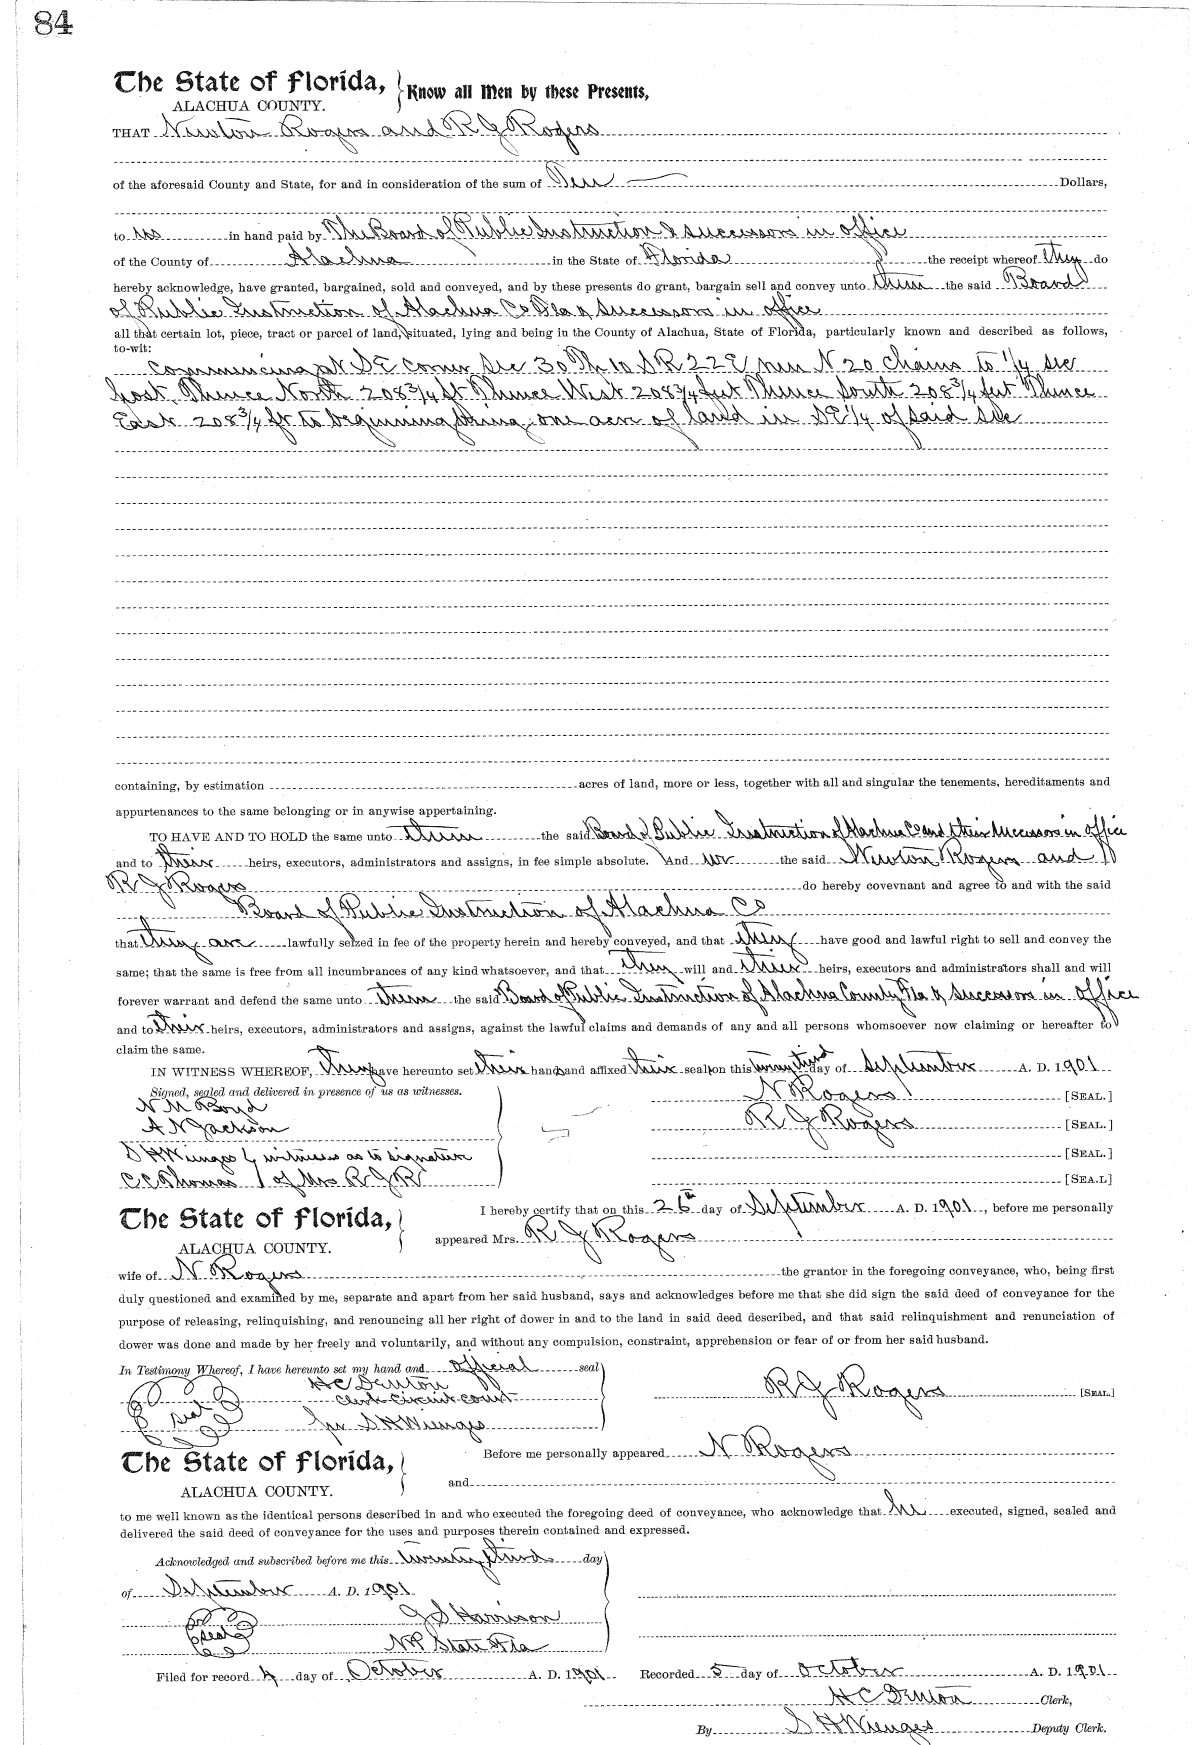 84
The State of Florida, Know all Men by these Presents,
ALACHUA COUNTY.
THAT Newton Rogers and R J Rogers
of the aforesaid County and State, for and in consideration of the sum of Ten Dollars,
to us in hand paid by The Board of Public Instruction & successors in office
of the County of Alachua in the State of Florida the receipt whereof they do
hereby acknowledge, have granted, bargained, sold and conveyed, and by these presents do grant, bargain sell and convey unto them the said Board
of Public Instruction of Alachua Co Fla & successors in office
all that certain lot, piece, tract or parcel of land, situated, lying and being in the County of Alachua, State of Florida, particularly known and described as follows,
to-wit:
Commencing at S E corner Sec 30 Th 10 S R 22 E run N 20 chains to 1/4 sec
post, Thence North 208 3/4 ft Thence West 208 3/4 feet Thence South 208 3/4 feet Thence
East 208 3/4 ft to beginning being one acre of land in S E 1/4 of said sec
containing, by estimation acres of land, more or less, together with all and singular the tenements, hereditaments and
appurtenances to the same belonging or in anywise appertaining.
TO HAVE AND TO HOLD the same unto them the said Board of Public Instruction of Alachua Co and their successors in office
and to their heirs, executors, administrators and assigns, in fee simple absolute. And we the said Newton Rogers and
R J Rogers do hereby covevnant and agree to and with the said
Board of Public Instruction of Alachua Co
that they are lawfully seized in fee of the property herein and hereby conveyed, and that they have good and lawful right to sell and convey the
same; that the same is free from all incumbrances of any kind whatsoever, and that they will and their heirs, executors and administrators shall and will
forever warrant and defend the same unto them the said Board of Public Instruction of Alachua County Fla & successors in office
and to their heirs, executors, administrators and assigns, against the lawful claims and demands of any and all persons whomsoever now claiming or hereafter to
claim the same.
IN WITNESS WHEREOF, they have hereunto set their hands and affixed their seals on this twenty third day of September A. D. 1901
Signed, sealed and delivered in presence of us as witnesses.
N Rogers [SEAL.]
N M Boyd
R J Rogers [SEAL.]
A N Jackson
[SEAL.]
S H Wienges witness as to signature
C C Thomas of Mrs R J R [SEA.L]
The State of Florida, I hereby certify that on this 26th day of September A. D. 1901, before me personally
ALACHUA COUNTY. appeared Mrs. R J Rogers
wife of N Rogers the grantor in the foregoing conveyance, who, being first
duly questioned and examined by me, separate and apart from her said husband, says and acknowledges before me that she did sign the said deed of conveyance for the
purpose of releasing, relinquishing, and renouncing all her right of dower in and to the land in said deed described, and that said relinquishment and renunciation of
dower was done and made by her freely and voluntarily, and without any compulsion, constraint, apprehension or fear of or from her said husband.
In Testimony Whereof, I have hereunto set my hand and official seal
H C Denton
R J Rogers [SEAL.]
Clerk Circuit Court
Seal
per S H Wienges
The State of Florida, Before me personally appeared N Rogers
ALACHUA COUNTY. and
to me well known as the identical persons described in and who executed the foregoing deed of conveyance, who acknowledge that he executed, signed, sealed and
delivered the said deed of conveyance for the uses and purposes therein contained and expressed.
Acknowledged and subscribed before me this twenty third day
of September A. D. 1901
J S Harrison
Seal
N P State Fla
Filed for record 4 day of October A. D. 1901 Recorded 5 day of October A. D. 1901
H C Denton Clerk,
By S H Wienges Deputy Clerk.